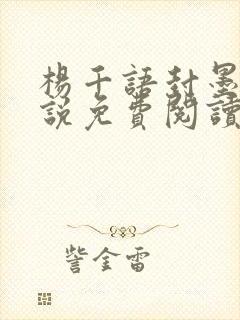 楊千語封墨
說免費閱讀
訾金雷